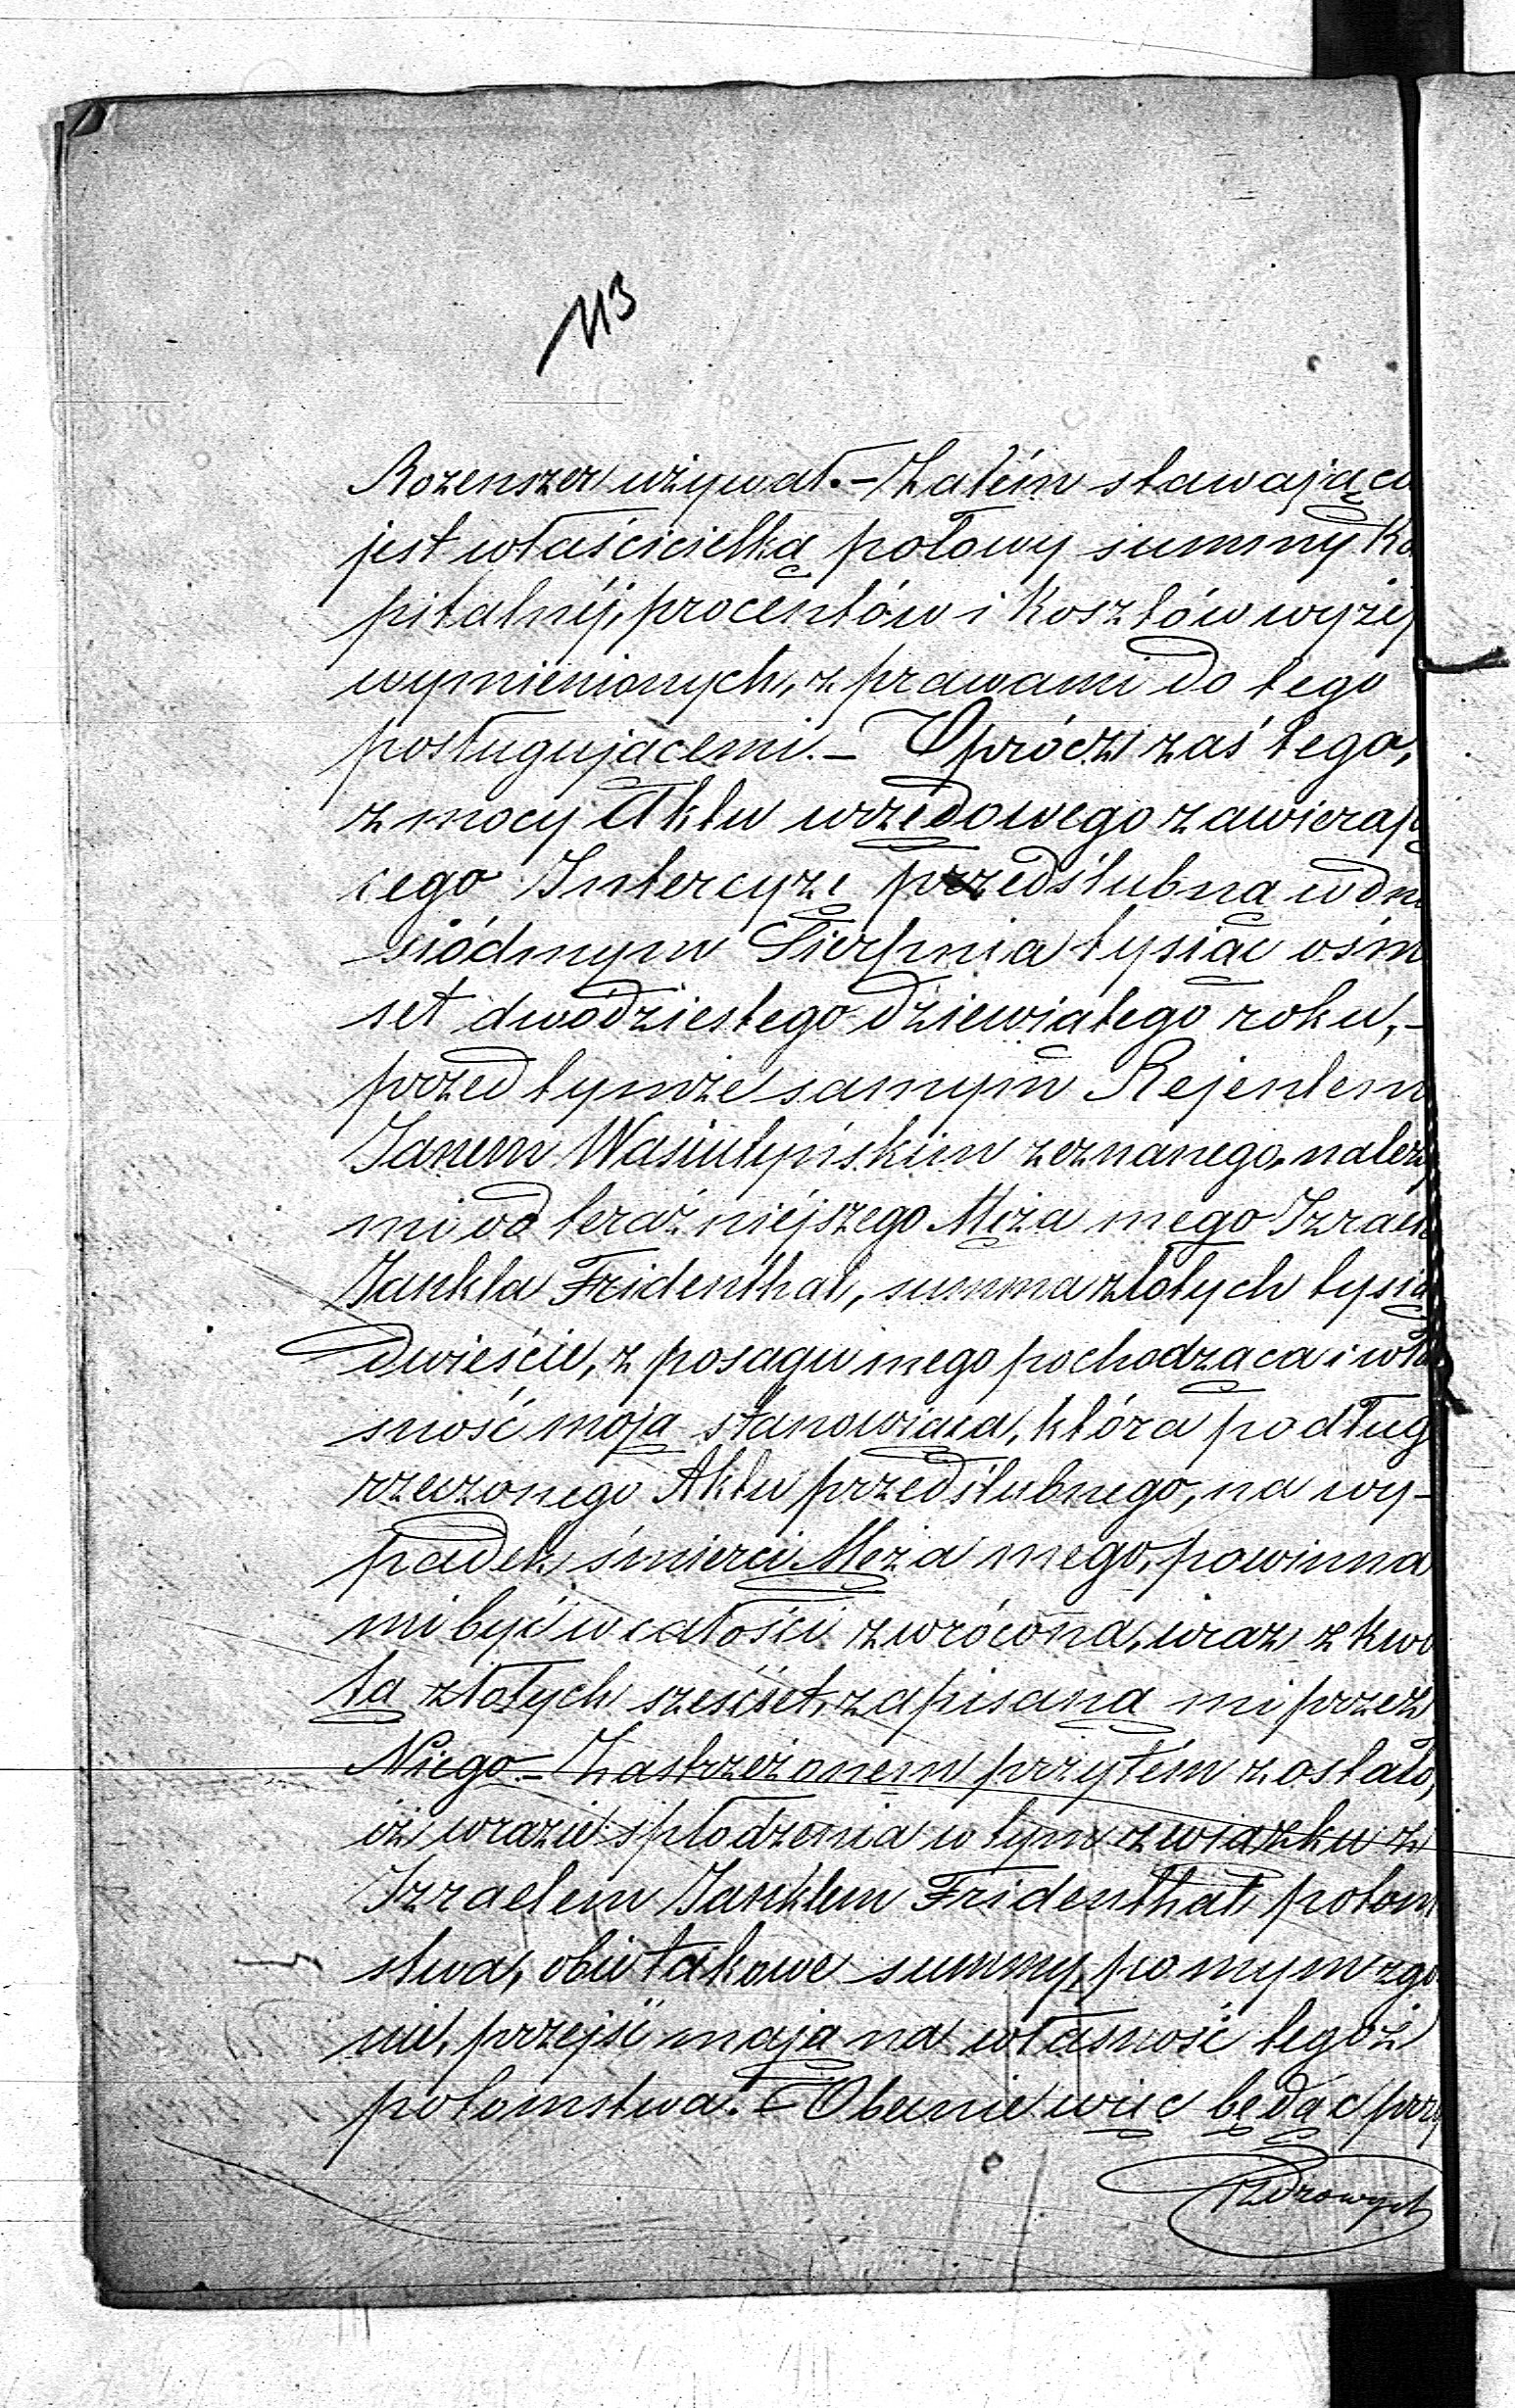 113
Rozenszer używał. – Zatém stawająca
jest właścicielką połowy summy ka
pitalnéj, procentów i kosztów wyżéj
wymienionych, z prawami do tego
posługującemi. – Oprócz zaś tego,
z mocy Aktu urzędowego zawierają
cego Intercyzę przedślubną w dn
siódmym Sierpnia tysiąc ośm
set dwódziestego dziewiątego roku, –
przed tymże samym Rejentem
Janem Wasiutyńskim zeznanego, należy
mi od teraźniéjszego Męża mego Izrael
Jankla Fridenthal, summa złotych tysią
dwieście, z posagu mego pochodząca i wła
sność moją stanowiąca, która podług
rzeczonego Aktu przedślubnego, na wy-
padek śmierci Męża mego, powinna
mi być w całości zwrócona, wraz z kwo
tą złotych sześćset, zapisaną mi przez
Niego. – Zastrzeżonem przytém zostało,
iż w razie spłodzenia w tym związku z
Izraelem Janklem Fridenthal potom
stwa, obie takowe summy, po mym zgo
nie, przejść mają na własność tegoż
potomstwa. – Obecnie więc będąc przy
zdrowych